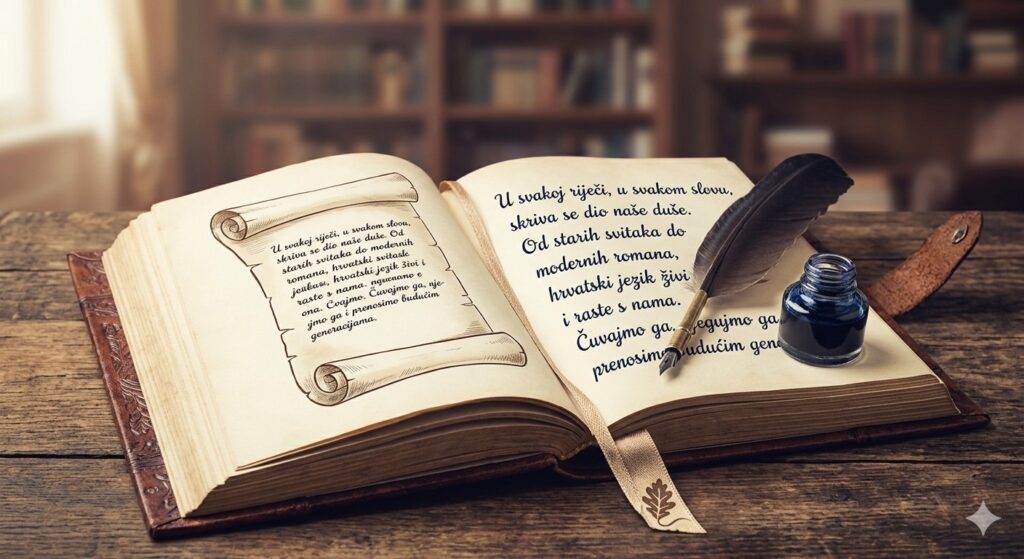 U svakoj riječi, u svakom slovu,
skriva se dio naše duše. Od
starih svitaka do modernih
romana, hrvatski svitask
jezikasu, hrvatski jezik živi i
raste s nama. 
ona. Čvajmo. Čuvajmo ga, nje-
jmo ga i prenosimo budućim
generacijama.
U svakoj riječi, u svakom slovu,
skriva se dio naše duše.
Od starih svitaka do
modernih romana,
hrvatski jezik živi
i raste s nama.
Čuvajmo ga, jegujmo ga
prenosimo budućim gen